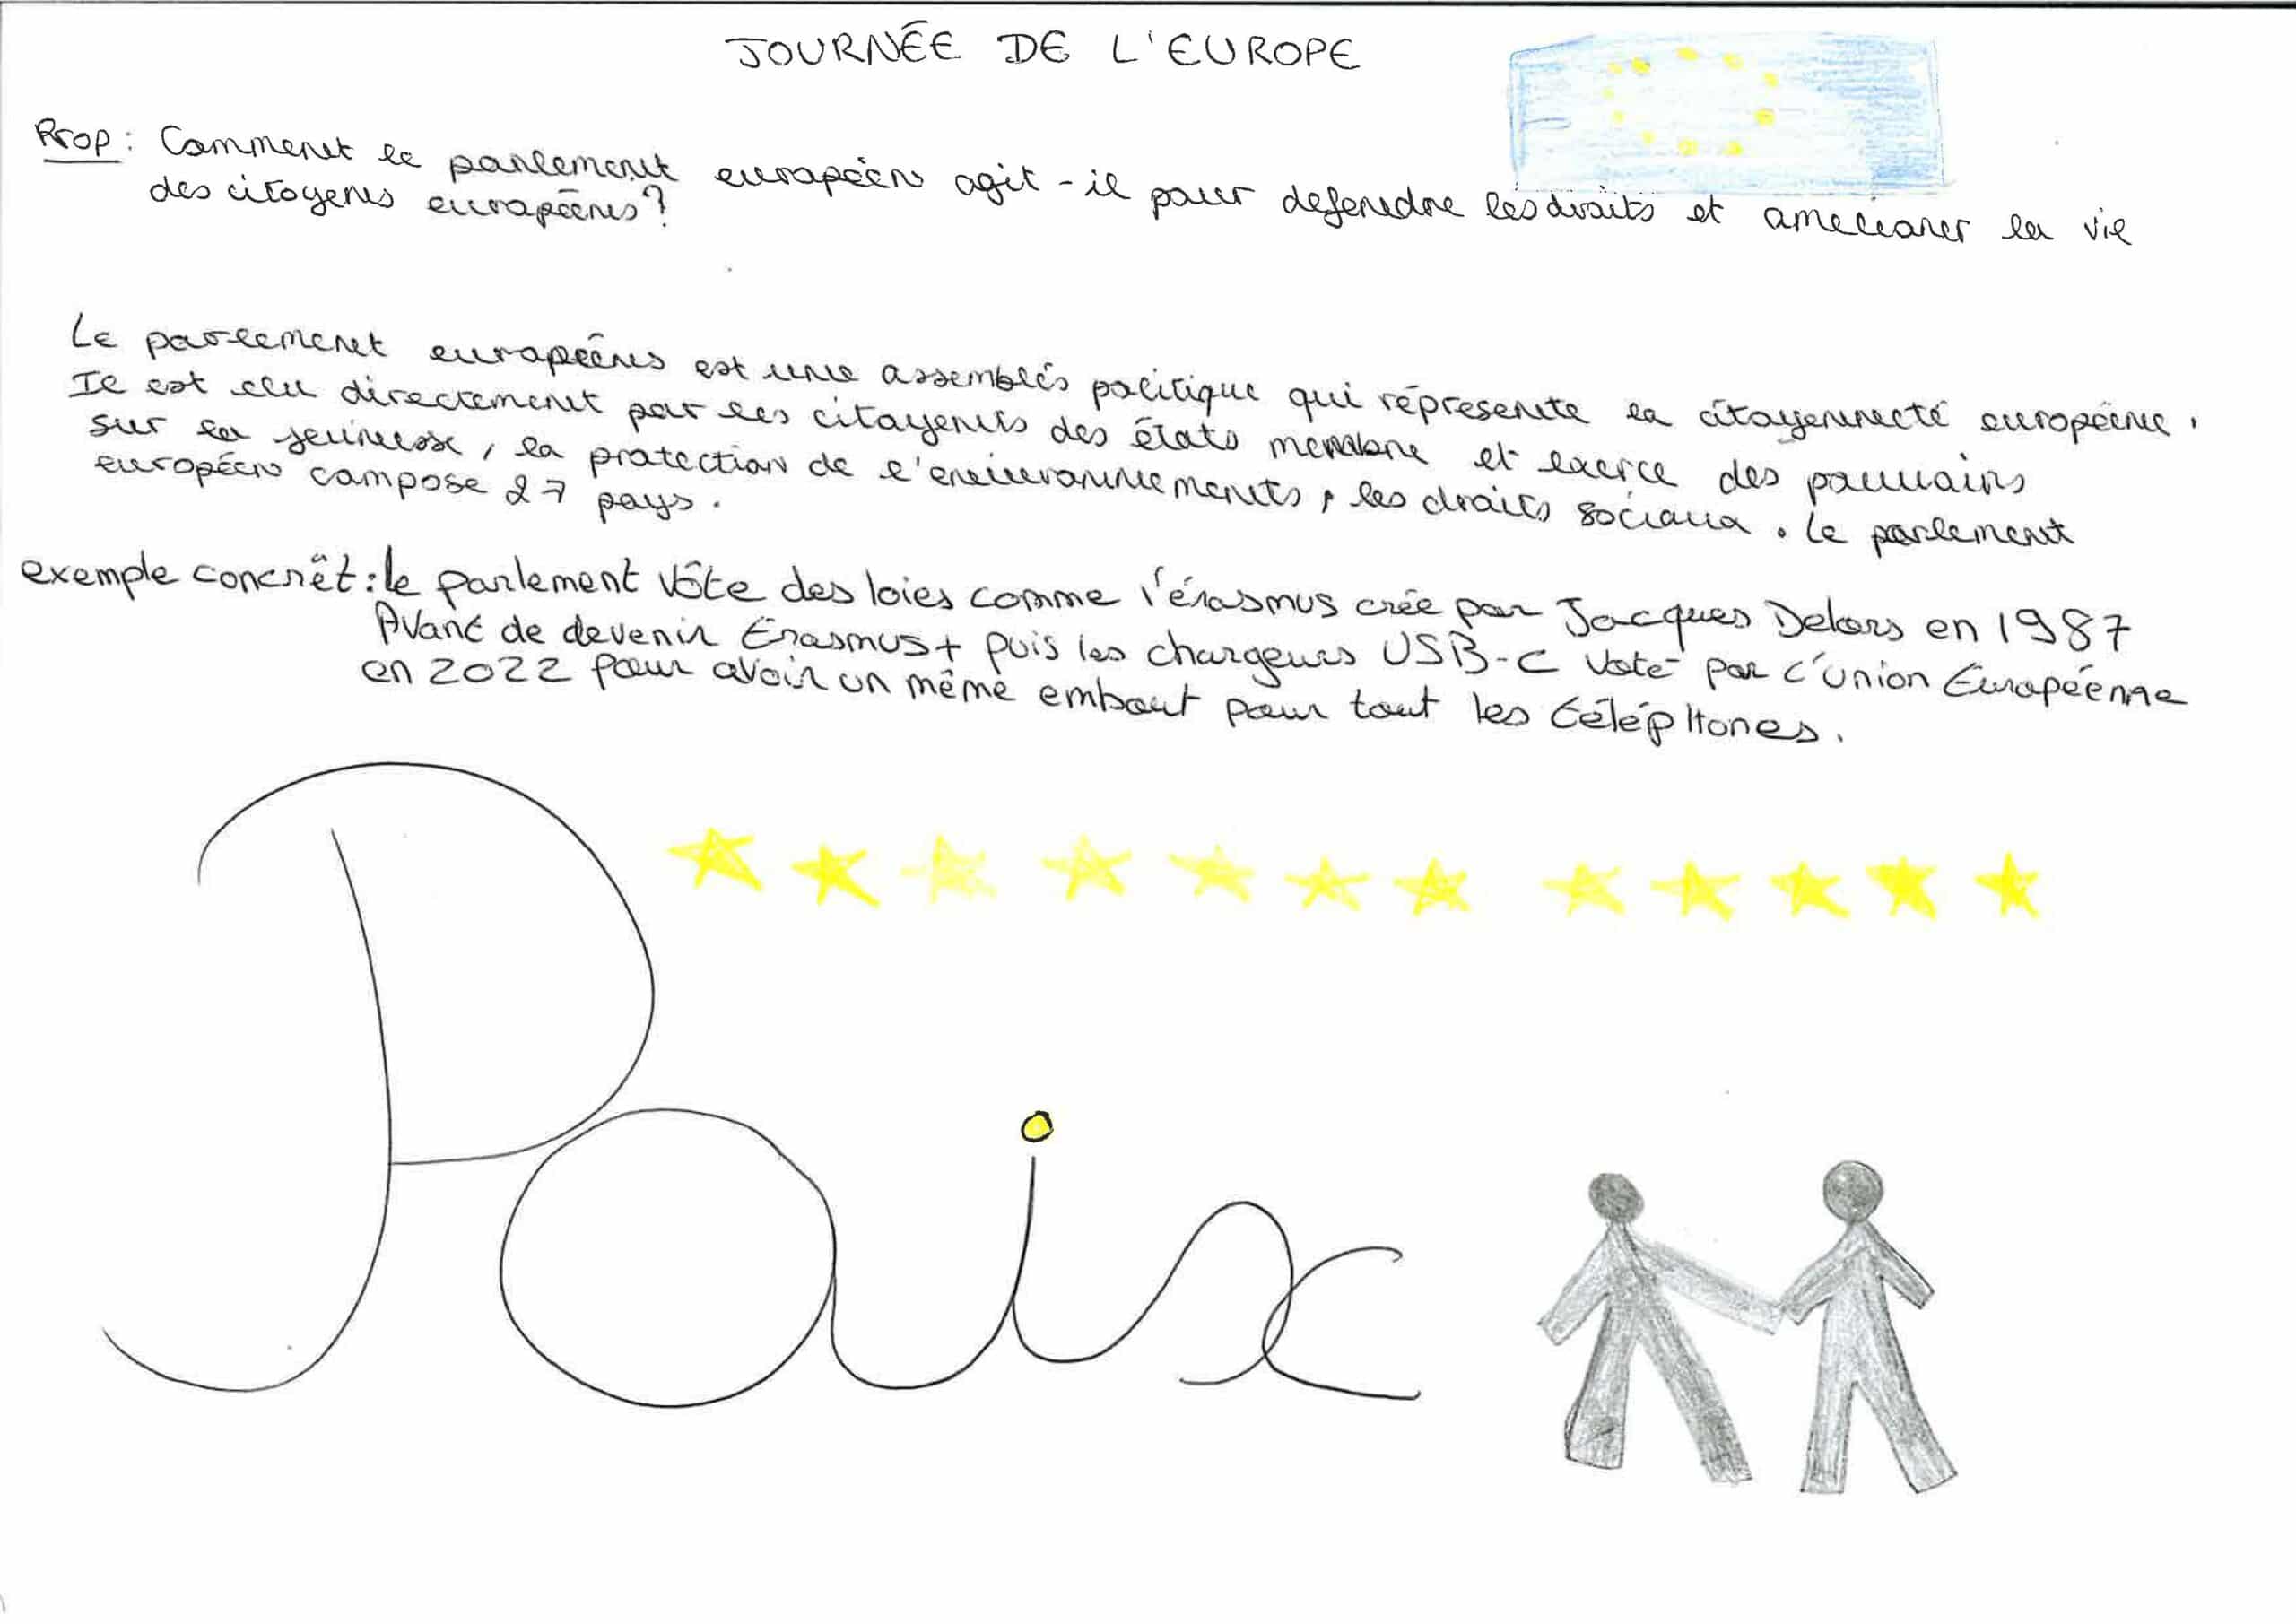 JOURNÉE DE L'EUROPE
Prop : Comment le parlement européen agit-il pour defendre les droits et ameliorer la vie
des citoyens européens?
Le parlement européens est une assemblés politique qui réprésente la citoyenneté européenne.
Il est élu directement par les citoyens des états membre et exerce des pouvoirs
sur la jeunesse, la protection de l'environnements, les droits sociaux. Le parlement
européen compose 27 pays.
exemple concrêt : le parlement vôte des loies comme l'érasmus crée par Jacques Delors en 1987
Avant de devenir Erasmus+ puis les chargeurs USB-C voté par l'Union Européenne
en 2022 pour avoir un même embout pour tout les téléphones.
Paix